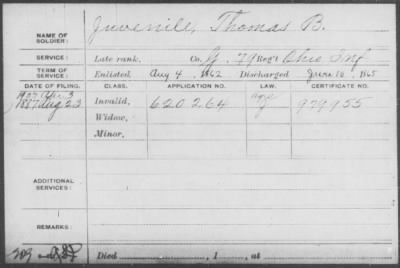 Juvenile, Thomas B.
NAME OF
SOLDIER:
SERVICE: Late rank, Co. G, 79 Reg't Ohio Inf
TERM OF
SERVICE: Enlisted Aug 4, 1862 Discharged June 10, 1865
DATE OF FILING. CLASS. APPLICATION NO. LAW. CERTIFICATE NO.
1887 Aug 23 Invalid, 620264 979955
Widow,
Minor,
ADDITIONAL
SERVICES:
REMARKS:
Died , 1 , at